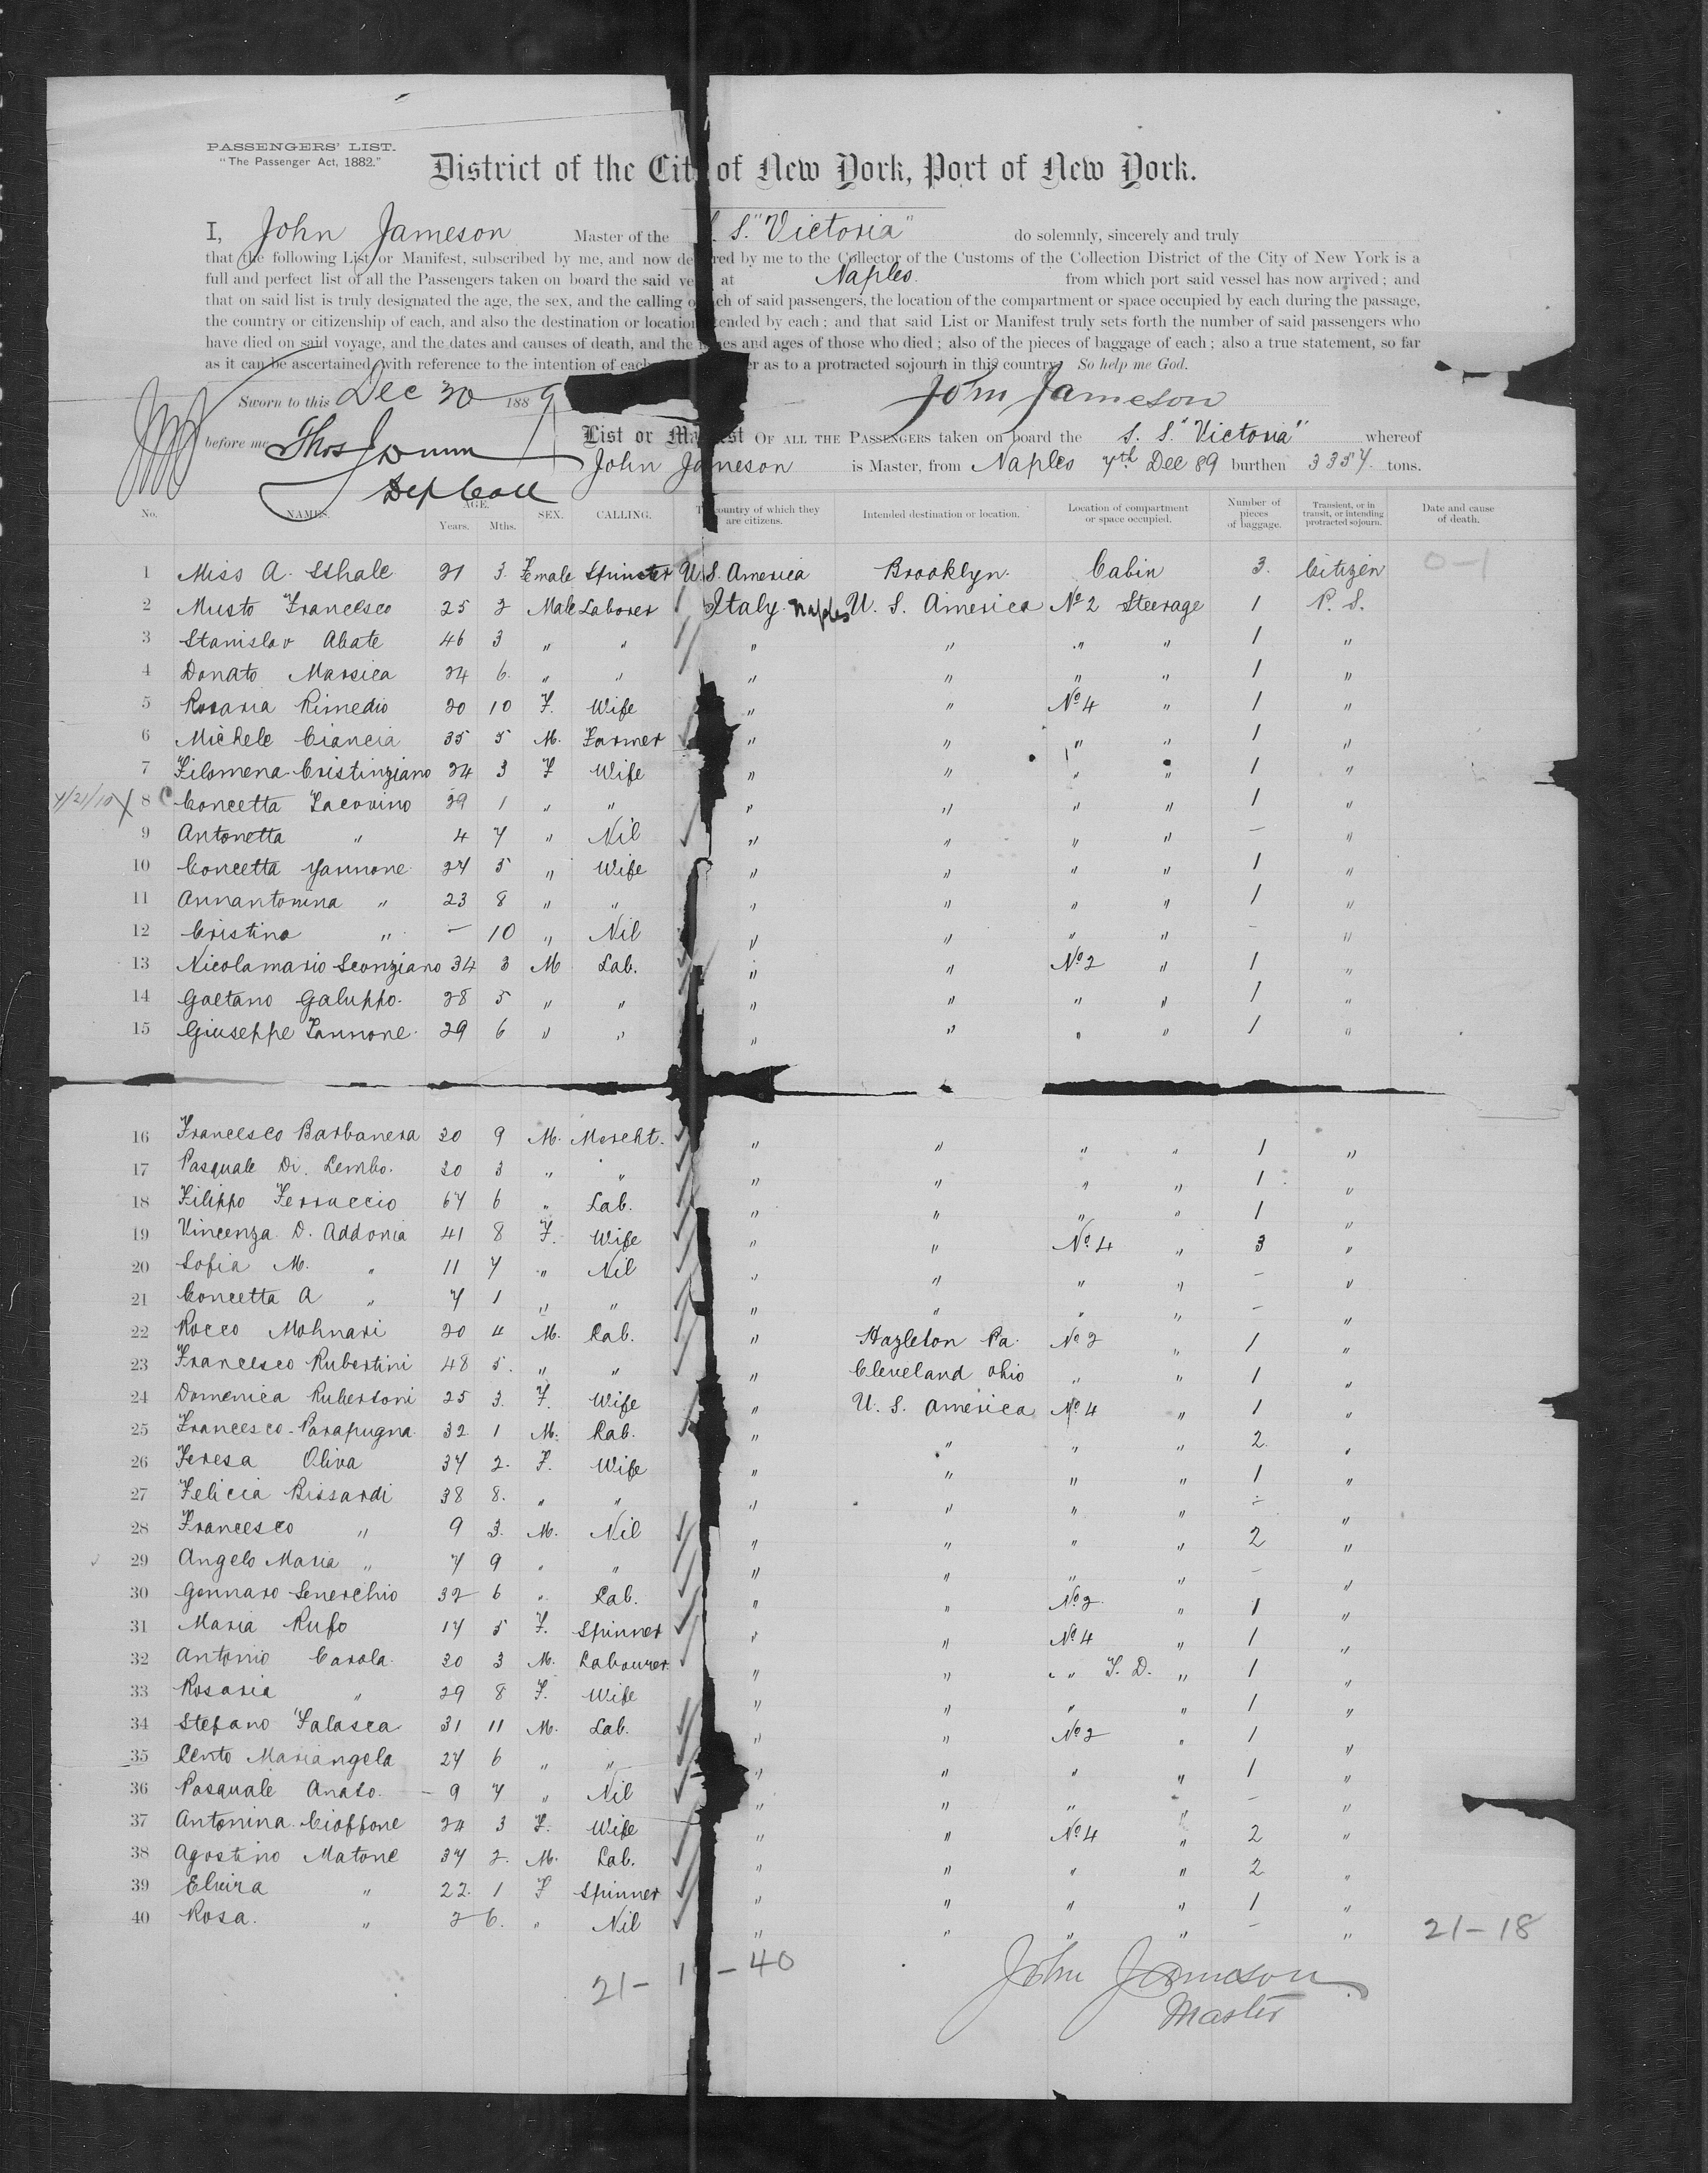 PASSENGERS' LIST.
"The Passenger Act, 1882."
District of the Cit of New York, Port of New York.
I, John Jameson Master of the S. "Victoria" do solemnly, sincerely and truly
that the following List or Manifest, subscribed by me, and now de red by me to the Collector of the Customs of the Collection District of the City of New York is a
full and perfect list of all the Passengers taken on board the said ve at Naples. from which port said vessel has now arrived ; and
that on said list is truly designated the age, the sex, and the calling o ach of said passengers, the location of the compartment or space occupied by each during the passage,
the country or citizenship of each, and also the destination or location tended by each ; and that said List or Manifest truly sets forth the number of said passengers who
have died on said voyage, and the dates and causes of death, and the es and ages of those who died ; also of the pieces of baggage of each ; also a true statement, so far
as it can be ascertained, with reference to the intention of each er as to a protracted sojourn in this country So help me God.
Sworn to this Dec 20 1889 John Jameson
before me Thos Dunn List or Ma est OF ALL THE PASSENGERS taken on board the S. S. "Victoria" whereof
Dep Coll John Jameson is Master, from Naples 7th Dec 89 burthen 3357 tons.
No. NAMES. AGE. Years. Mths. SEX. CALLING. The country of which they are citizens. Intended destination or location. Location of compartment or space occupied. Number of pieces of baggage. Transient, or in transit, or intending protracted sojourn. Date and cause of death.
1 Miss A. Sthale 21 3. Female Spinster U.S. America Brooklyn. Cabin 3. Citizen 0-1
2 Musto Francesco 25 2 Male Laborer Italy Naples U. S. America No 2 Steerage 1 P. S.
3 Stanislav Abate 46 3 " " " " " " 1 "
4 Donato Marsica 24 6. " " " " " " 1 "
5 Rosaria Rimedio 20 10 F. Wife " " No 4 " 1 "
6 Michele Ciancia 35 5 M. Farmer " " " " 1 "
7 Filomena Cristinziano 24 3 F Wife " " " " 1 "
4/21/10 X 8 C Concetta Iacovino 29 1 " " " " " " 1 "
9 Antonetta " 4 7 " Nil " " " " — "
10 Concetta Yannone 27 5 " Wife " " " " 1 "
11 Annantonina " 23 8 " " " " " " 1 "
12 Cristina " — 10 " Nil " " " " - "
13 Nicolamario Sconziano 34 3 M Lab. " " No 2 " 1 "
14 Gaetano Galuppo. 28 5 " " " " " " 1 "
15 Giuseppe Iannone 29 6 " " " " " " 1 "
16 Francesco Barbanera 30 9 M. Mercht. " " " " 1 "
17 Pasquale Di. Lembo. 20 3 " " " " " " 1 "
18 Filippo Ferruccio 67 6 " Lab. " " " " 1 "
19 Vincenza D. Addonia 41 8 F. Wife " " No 4 " 3 "
20 Sofia M. " 11 7 " Nil " " " " — "
21 Concetta A " 7 1 " " " " " " — "
22 Rocco Molinari 20 4 M. Lab. " Hazleton Pa. No 2 " 1 "
23 Francesco Rubertini 48 5. " " " Cleveland Ohio " " 1 "
24 Domenica Rubertoni 25 3. F. Wife " U. S. America No 4 " 1 "
25 Francesco Parapugna 32 1 M. Lab. " " " " 2 "
26 Teresa Oliva 37 2. F. Wife " " " " 1 "
27 Felicia Bissardi 38 8. " " " " " " — "
28 Francesco " 9 3. M. Nil " " " " 2 "
29 Angelo Maria " 7 9 " " " " " " — "
30 Gennaro Senerchio 32 6 " Lab. " " No 2 " 1 "
31 Maria Rufo 17 5 F. Spinner " " No 4 " 1 "
32 Antonio Carola 30 3 M. Labourer " " " " T. D. " 1 "
33 Rosaria " 29 8 F. Wife " " " " 1 "
34 Stefano Falasca 31 11 M. Lab. " " No 2 " 1 "
35 Cento Mariangela 27 6 " " " " " " 1 "
36 Pasquale Anaso. — 9 7 " Nil " " " " - "
37 Antonina Cioffone 24 3 F. Wife " " No 4 " 2 "
38 Agostino Matone 37 2. M. Lab. " " " " 2 "
39 Elvira " 22. 1 F Spinner " " " " 1 "
40 Rosa. " 2 6. " Nil " " " " — " 21-18
21- 1 - 40 John Jameson
Master